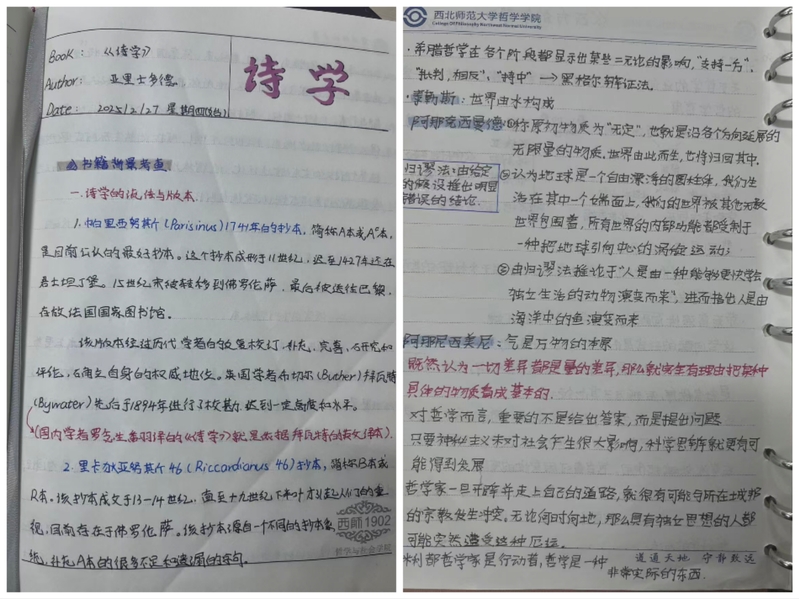 Book：《诗学》
诗学
Author：亚里士多德.
Date： 2025/2/27 星期四
书籍背景考查
一.诗学的流传与版本
1.帕里西努斯（Parisinus）1741年的抄本，简称A本或Aᶜ本，
是目前公认的最好抄本。这个抄本成形于11世纪，迟至1427年还在
君士坦丁堡。15世纪末被转移到佛罗伦萨，最后被送往巴黎，
存放法国国家图书馆。
该版本经过历代学者的反复校订、补充、完善、研究和
评论，确立自身的权威地位。英国学者布切尔（Butcher）拜瓦特
（Bywater）先后于1894年进行了校勘，达到一定高度和水平。
（国内学者罗念生翻译的《诗学》就是依据拜瓦特的校文译本）.
2.里卡狄亚努斯46（Riccardianus 46）抄本，简称B本或
R本。该抄本成文于13-14世纪，直至十九世纪下来叶才引起人们的重
视，目前存在于佛罗伦萨。该抄本源自一个不同的抄本
统，补充A本的很多不足和遗漏的字句。
西师1902
哲学与社会学院
西北师范大学哲学学院
College Of Philosophy Northwest Normal University
·希腊哲学在各个阶段都显示出某些二元论的影响，“支持一方”、
“批判，相反”、“持中” → 黑格尔辩证法.
·泰勒斯：世界由水构成
阿那克西曼德①称原初物质为“无定”，也就是沿各个方向延展的
无限量的物质。世界由此而生，也将归回其中.
归谬法:由给定
的假设推出明显
错误的结论.
②认为地球是一个自由漂浮的圆柱体，我们生
活在其中一个端面上，我们的世界被其他无数
世界包围着，所有世界的内部功能都受制于
一种把地球引向中心的涡旋运动
③由归谬法推论于“人是由一种能够更快学会
独立生活的动物演变而来”，进而指出人是由
海洋中的鱼演变而来
阿那克西美尼：气是万物的本原
既然认为一切差异都是量的差异，那么就完全有理由把某种
具体的物质看成基本的.
对哲学而言，重要的不是给出答案，而是提出问题
只要神秘主义未对社会产生很大影响，科学思辨就更有可
能得到发展
哲学家一旦开辟并走上自己的道路，就很有可能与所在城邦
的宗教发生冲突。无论何时何地，那么具有独立思想的人都
可能突然遭受这种厄运.
米利都哲学家是行动者，哲学是一种
非常实际的东西.
道通天地 守静致远